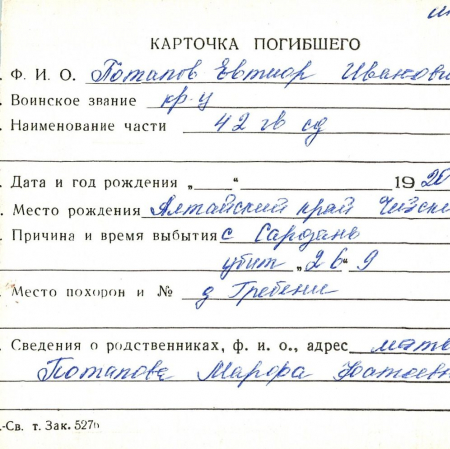 КАРТОЧКА ПОГИБШЕГО
. Ф. И. О. Потапов Евтиор Иванови
. Воинское звание кр-ц
. Наименование части 42 гв сд
. Дата и год рождения „ “ 1920
. Место рождения Алтайский край
. Причина и время выбытия с
убит „26“ 9
. Место похорон и № д Гребени
. Сведения о родственниках, ф. и. о., адрес мать
Потапова Марфа
.-Св. т. Зак. 527